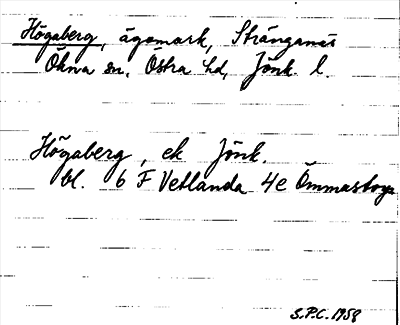 Högaberg, ägomark, Stränganäs
Ökna sn. Östra hd, Jönk. l.
Högaberg, ek Jönk.
bl. 6 F Vetlanda 4e Ömmaskoga
S.P.C. 1958